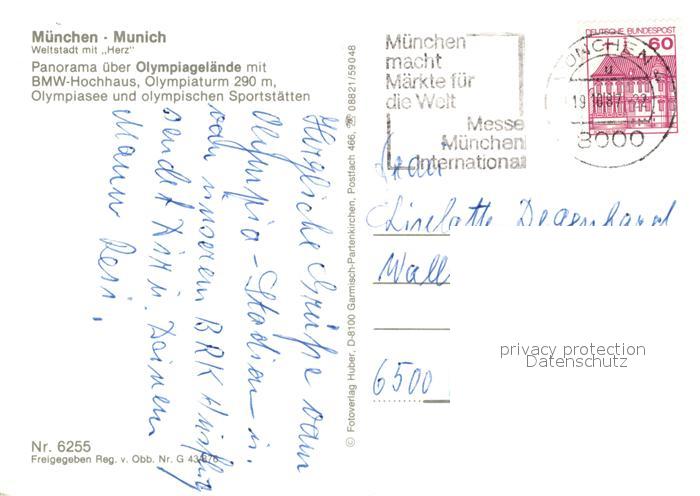 München · Munich
Weltstadt mit „Herz"
Panorama über Olympiagelände mit
BMW-Hochhaus, Olympiaturm 290 m,
Olympiasee und olympischen Sportstätten
Herzliche Grüße vom
Olympia-Stadion u.
von unserem BRK Ausflug
sendet Dir u. Deinem
Mann Resi.
Nr. 6255
Freigegeben Reg. v. Obb. Nr. G 43/876
© Fotoverlag Huber, D-8100 Garmisch-Partenkirchen, Postfach 466, ☎ 08821/59048
München
macht
Märkte für
die Welt
Messe
München
International
DEUTSCHE BUNDESPOST
60
MÜNCHEN
19.10.87
8000
Frau
Liselotte Degenhard
Wall
6500
privacy protection
Datenschutz